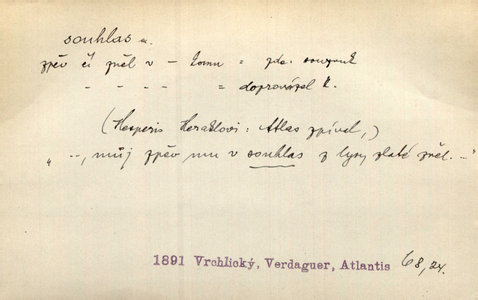 souhlas m.
zpěv čí zněl v – komu = zde. souzvuk
- - - - = doprovázel k.
(Hesperis Heraklovi: Atlas zpíval,)
„ ..., můj zpěv mu v souhlas z lyry zlaté zněl. ..."
1891 Vrchlický, Verdaguer, Atlantis 68,24.